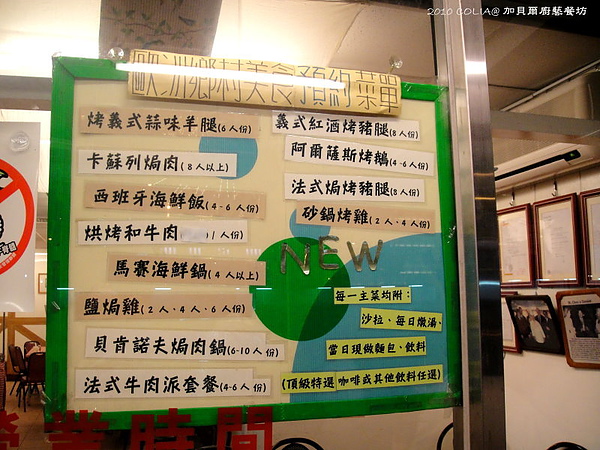 2010 COLIA@ 加貝爾廚藝餐坊
歐洲鄉村美食預約菜單
烤義式蒜味羊腿(6人份)
卡蘇列焗肉(8人以上)
西班牙海鮮飯(4-6人份)
烘烤和牛肉 /人份)
馬賽海鮮鍋(4人以上)
鹽焗雞(2人、4人、6人份)
貝肯諾夫焗肉鍋(6-10人份)
法式牛肉派套餐(4-6人份)
義式紅酒烤豬腿(8人份)
阿爾薩斯烤鵝(4-6人份)
法式焗烤豬腿(8人份)
砂鍋烤雞(2人、4人份)
NEW
每一主菜均附:
沙拉、每日燉湯、
當日現做麵包、飲料
(頂級特選咖啡或其他飲料任選)
營業時間